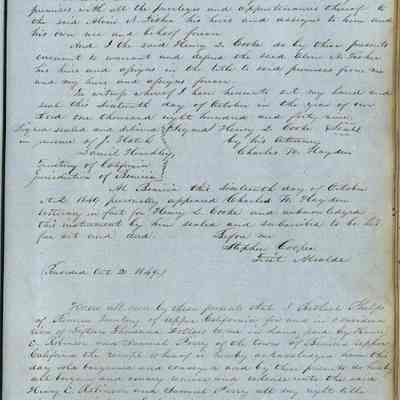 premises with all the privileges and appurtenances thereof to
the said his heirs and assigns to him and
his own use and behoof forever
And I the said Henry L. Cooke do by these presents
covenant to warrant and defend the said
his heirs and assigns in the title to said premises from me
and my heirs and assigns forever
In witness whereof I have hereunto set my hand and
seal this Sixteenth day of October in the year of our
Lord one thousand eight hundred and forty nine
Signed sealed and delivered Signed Henry L Cooke Seal
in presence of J. Hatch by his Attorney
Daniel Charles W. Hayden
Territory of California
Jurisdiction of Benicia
At Benicia this sixteenth day of October
A.D. 1849 personally appeared Charles W. Hayden
Attorney in fact for Henry L Cooke and acknowledged
this instrument by him sealed and subscribed to be his
free act and deed. Before me
Stephen Cooper
First Alcalde
Recorded Oct 20 1849
Know all men by these presents that I Phelps
of Benicia of Upper California for and in
of Thousand Dollars to me in hand paid by Henry
E. Robinson and Samuel Perry of the town of Benicia Upper
California the receipt whereof is hereby acknowledged have this
day sold bargained and conveyed and by these presents do hereby
sell bargain and convey and release unto the said
Henry E. Robinson and Samuel Perry all my right title